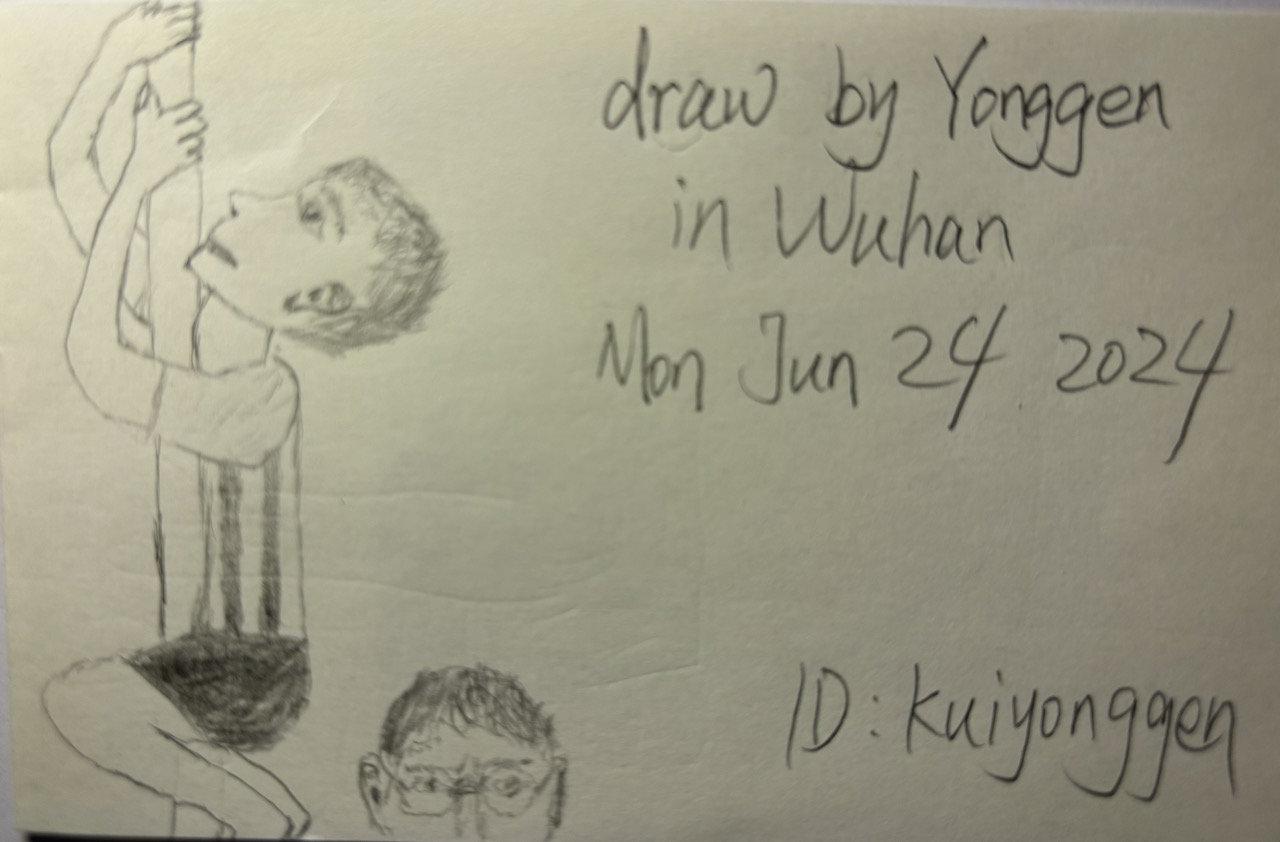 draw by Yonggen
in Wuhan
Mon Jun 24 2024
ID: kuiyonggen